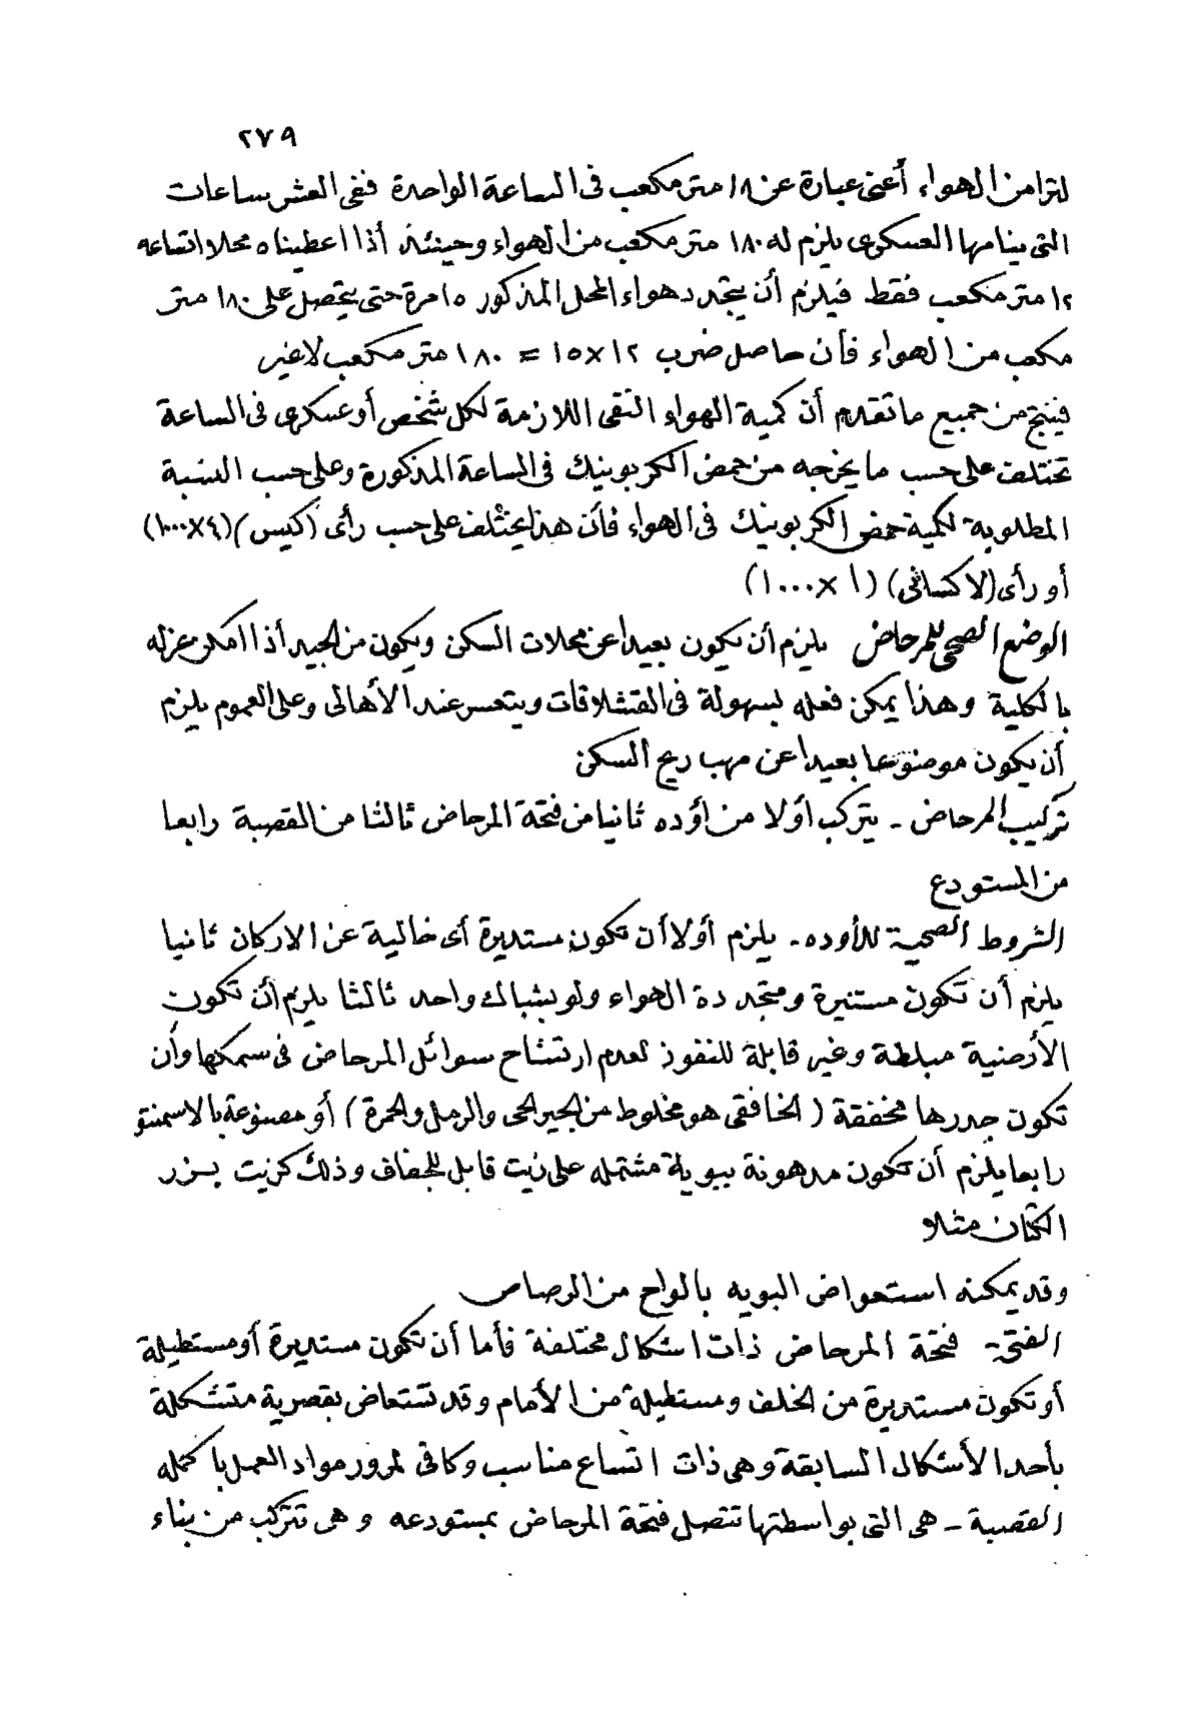 ٢٧٩
لترا من الهواء أعنى عبارة عن ١٨ متر مكعب فى الساعة الواحدة ففى العشر ساعات
التى ينامها العسكرى يلزم له ١٨٠ متر مكعب من الهواء وحينئذ أذا اعطيناه محلا اتساعه
١٢ متر مكعب فقط فيلزم أن يتجدد هواء المحل المذكور ١٥ مرة حتى يتحصل على ١٨٠ متر
مكعب من الهواء فأن حاصل ضرب ١٢×١٥ = ١٨٠ متر مكعب لاغير
فينتج من جميع ماتقدم أن كمية الهواء النقى اللازمة لكل شخص أو عسكرى فى الساعة
تختلف على حسب ما يخرجه من حمض الكربونيك فى الساعة المذكورة وعلى حسب النسبة
المطلوبة لكمية حمض الكربونيك فى الهواء فأن هذا يختلف على حسب رأى (كيس) (٤×١٠٠٠٠)
أو رأى (لا كساڤى) (١ ×١٠٠٠)
الوضع الصحى للمرحاض يلزم أن يكون بعيدا عن محلات السكن ويكون من الجيد أذا امكن عزله
بالكلية وهذا يمكن فعله بسهولة فى القشلاقات ويتعسر عند الأهالى وعلى العموم يلزم
أن يكون موضوعا بعيدا عن مهب ريح السكن
تركيب المرحاض - يتركب أولا من أوده ثانيا من فتحة المرحاض ثالثا من القصبة رابعا
من المستودع
الشروط الصحية للأوده - يلزم أولا أن تكون مستديرة أى خالية عن الاركان ثانيا
يلزم أن تكون مستنيرة ومتجددة الهواء ولو بشباك واحد ثالثا يلزم أن تكون
الأرضية مبلطة وغير قابلة للنفوذ لعدم ارتشاح سوائل المرحاض فى سمكها وأن
تكون جدرها مخفقة (الخافقى هو مخلوط من الجير الحى والرمل والحمرة) أو مصنوعة بالاسمنتو
رابعا يلزم أن تكون مدهونة ببوية مشتمله على زيت قابل للجفاف وذلك كزيت بزر
الكتان مثلا
وقد يمكنه استعواض البويه بالواح من الرصاص
الفتحة - فتحة المرحاض ذات اشكال مختلفة فأما أن تكون مستديرة أو مستطيلة
أو تكون مستديرة من الخلف ومستطيلة من الأمام وقد تستعاض بقصرية متشكلة
بأحد الأشكال السابقة وهى ذات اتساع مناسب وكافى لمرور مواد العمل باكمله
القصبة - هى التى بواسطتها تتصل فتحة المرحاض بمستودعه وهى تتركب من بناء